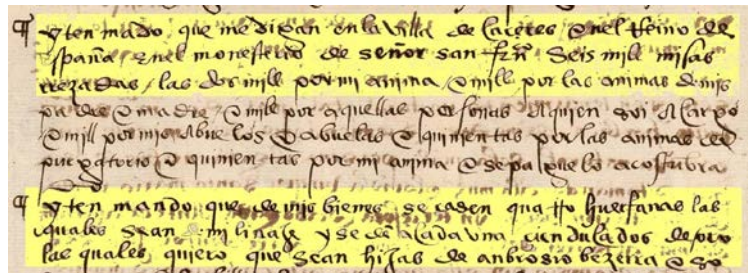 ¶ yten mãdo que me digan en la villa de caçeres en el Reino de
españa en el monesterio de señor san frñco seis mill misas
rrezadas / las dos mill por mi anima / e mill por las animas de mis
padre e madre / e mill por aquellas personas a quien soi a cargo
e mill por mis abuelos e abuelas e quinientas por las animas del
purgatorio e quinientas por mi anima e se pague lo acostũbra
do
¶ yten mando que de mis bienes se casen quatro huerfanas las
quales sean mi linaje y se de a cada una çien ducados de oro
las quales quiero que sean hijas de anbrosio bezerra e